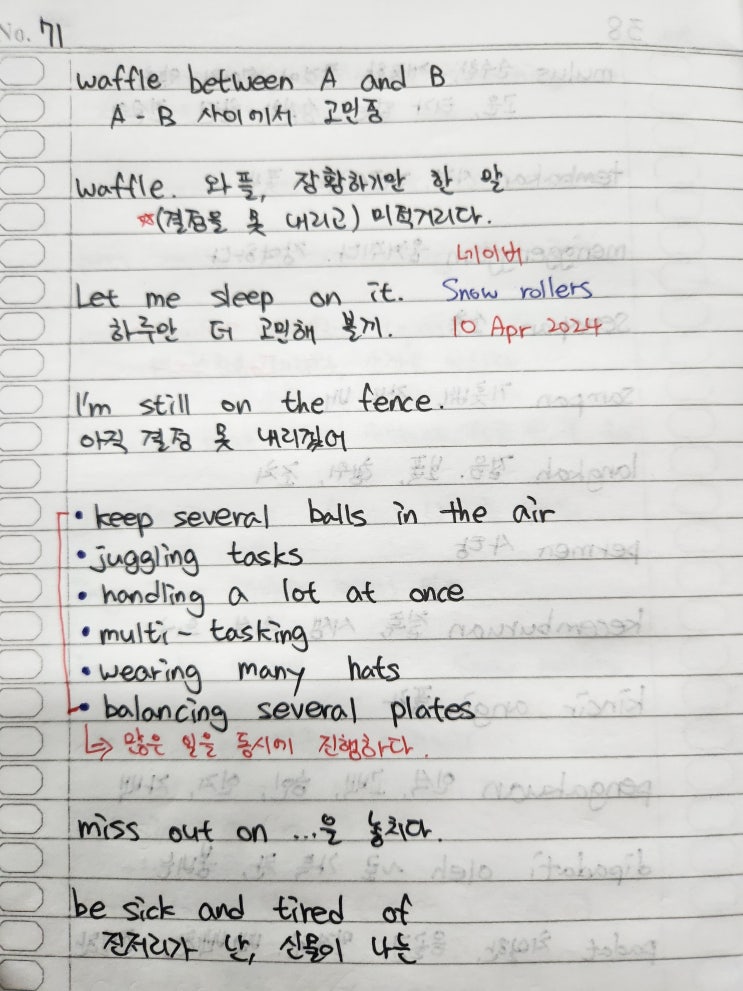 No. 71
waffle between A and B
A - B 사이에서 고민중
waffle. 와플, 장황하기만 한 말
☆(결정을 못 내리고) 미적거리다.
네이버
Let me sleep on it. Snow rollers
하루만 더 고민해 볼께. 10 Apr 2024
I'm still on the fence.
아직 결정 못 내리겠어
• keep several balls in the air
• juggling tasks
• handling a lot at once
• multi-tasking
• wearing many hats
• balancing several plates
↳ 많은 일을 동시에 진행하다.
miss out on ...을 놓치다.
be sick and tired of
진저리가 난, 신물이 나는